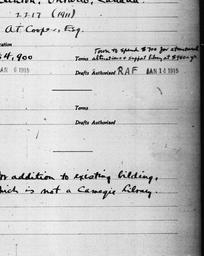 Clinton, Ontario, Canada.
2717 (1911)
A.T. Cooper, Esq.
Town to spend $700 for
$4,900 Terms alterations & suppt library at
JAN 6 1915 Drafts Authorized RAF JAN 14 1915
Terms
Drafts Authorized
for addition to existing bilding,
which is not a Carnegie Library.